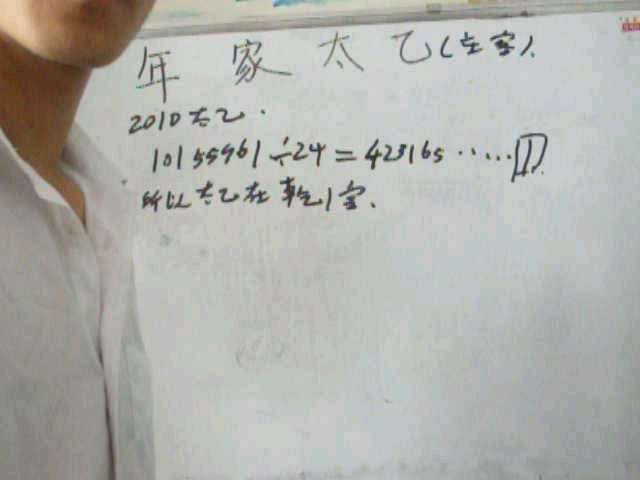 年 家 太 乙
2010太乙.
10155961÷24=423165······1
所以太乙在乾1宫.